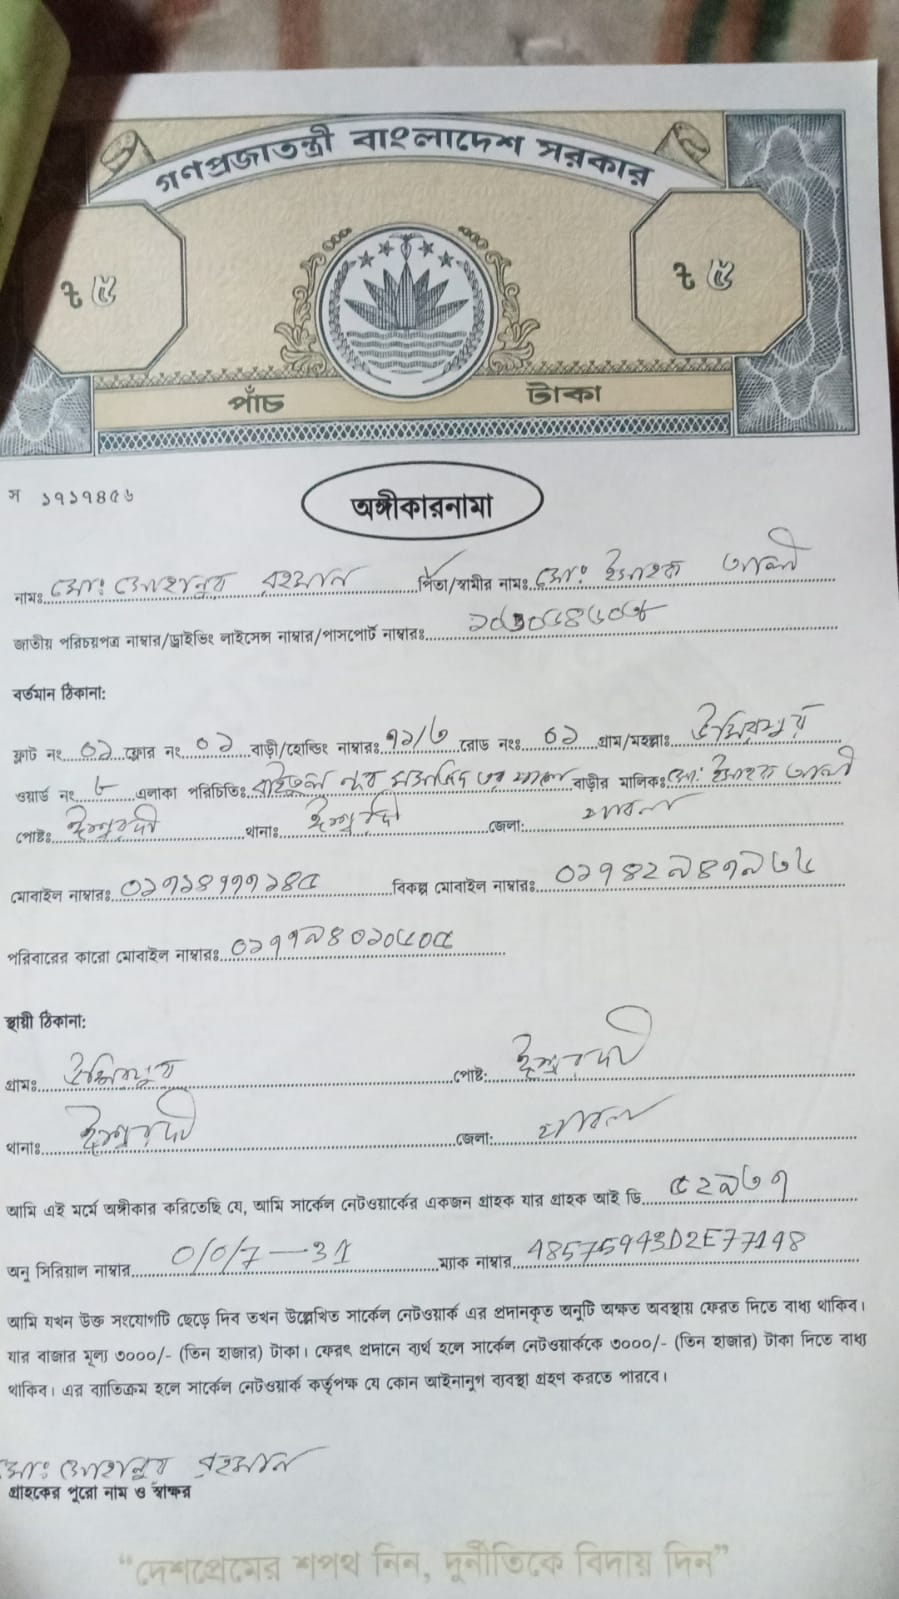 গণপ্রজাতন্ত্রী বাংলাদেশ সরকার
৳ ৫ ৳ ৫
পাঁচ টাকা
স ১৭১৭৪৫৬
অঙ্গীকারনামা
নামঃ মোঃ রহমান পিতা/স্বামীর নামঃ মোঃ আলী
জাতীয় পরিচয়পত্র নাম্বার/ড্রাইভিং লাইসেন্স নাম্বার/পাসপোর্ট নাম্বারঃ
বর্তমান ঠিকানা:
ফ্লাট নং ০১ ফ্লোর নং ০১ বাড়ী/হোল্ডিং নাম্বারঃ ৭১/৬ রোড নংঃ ০১ গ্রাম/মহল্লাঃ
ওয়ার্ড নং এলাকা পরিচিতিঃ বাইতুল নূর মসজিদ এর পাশে বাড়ীর মালিকঃ মোঃ আলী
পোষ্টঃ ঈশ্বরদী থানাঃ ঈশ্বরদী জেলা: পাবনা
মোবাইল নাম্বারঃ ০১৭১৪৭৭৭১৪৫ বিকল্প মোবাইল নাম্বারঃ
পরিবারের কারো মোবাইল নাম্বারঃ
স্থায়ী ঠিকানা:
গ্রামঃ পোষ্ট: ঈশ্বরদী
থানাঃ ঈশ্বরদী জেলা: পাবনা
আমি এই মর্মে অঙ্গীকার করিতেছি যে, আমি সার্কেল নেটওয়ার্কের একজন গ্রাহক যার গ্রাহক আই ডি ৫২৯৬৭
অনু সিরিয়াল নাম্বার 0/0/7 – 31 ম্যাক নাম্বার 48575443D2E77198
আমি যখন উক্ত সংযোগটি ছেড়ে দিব তখন উল্লেখিত সার্কেল নেটওয়ার্ক এর প্রদানকৃত অনুটি অক্ষত অবস্থায় ফেরত দিতে বাধ্য থাকিব।
যার বাজার মূল্য ৩০০০/- (তিন হাজার) টাকা। ফেরৎ প্রদানে ব্যর্থ হলে সার্কেল নেটওয়ার্ককে ৩০০০/- (তিন হাজার) টাকা দিতে বাধ্য
থাকিব। এর ব্যতিক্রম হলে সার্কেল নেটওয়ার্ক কর্তৃপক্ষ যে কোন আইনানুগ ব্যবস্থা গ্রহণ করতে পারবে।
মোঃ রহমান
গ্রাহকের পুরো নাম ও স্বাক্ষর
“দেশপ্রেমের শপথ নিন, দুর্নীতিকে বিদায় দিন”